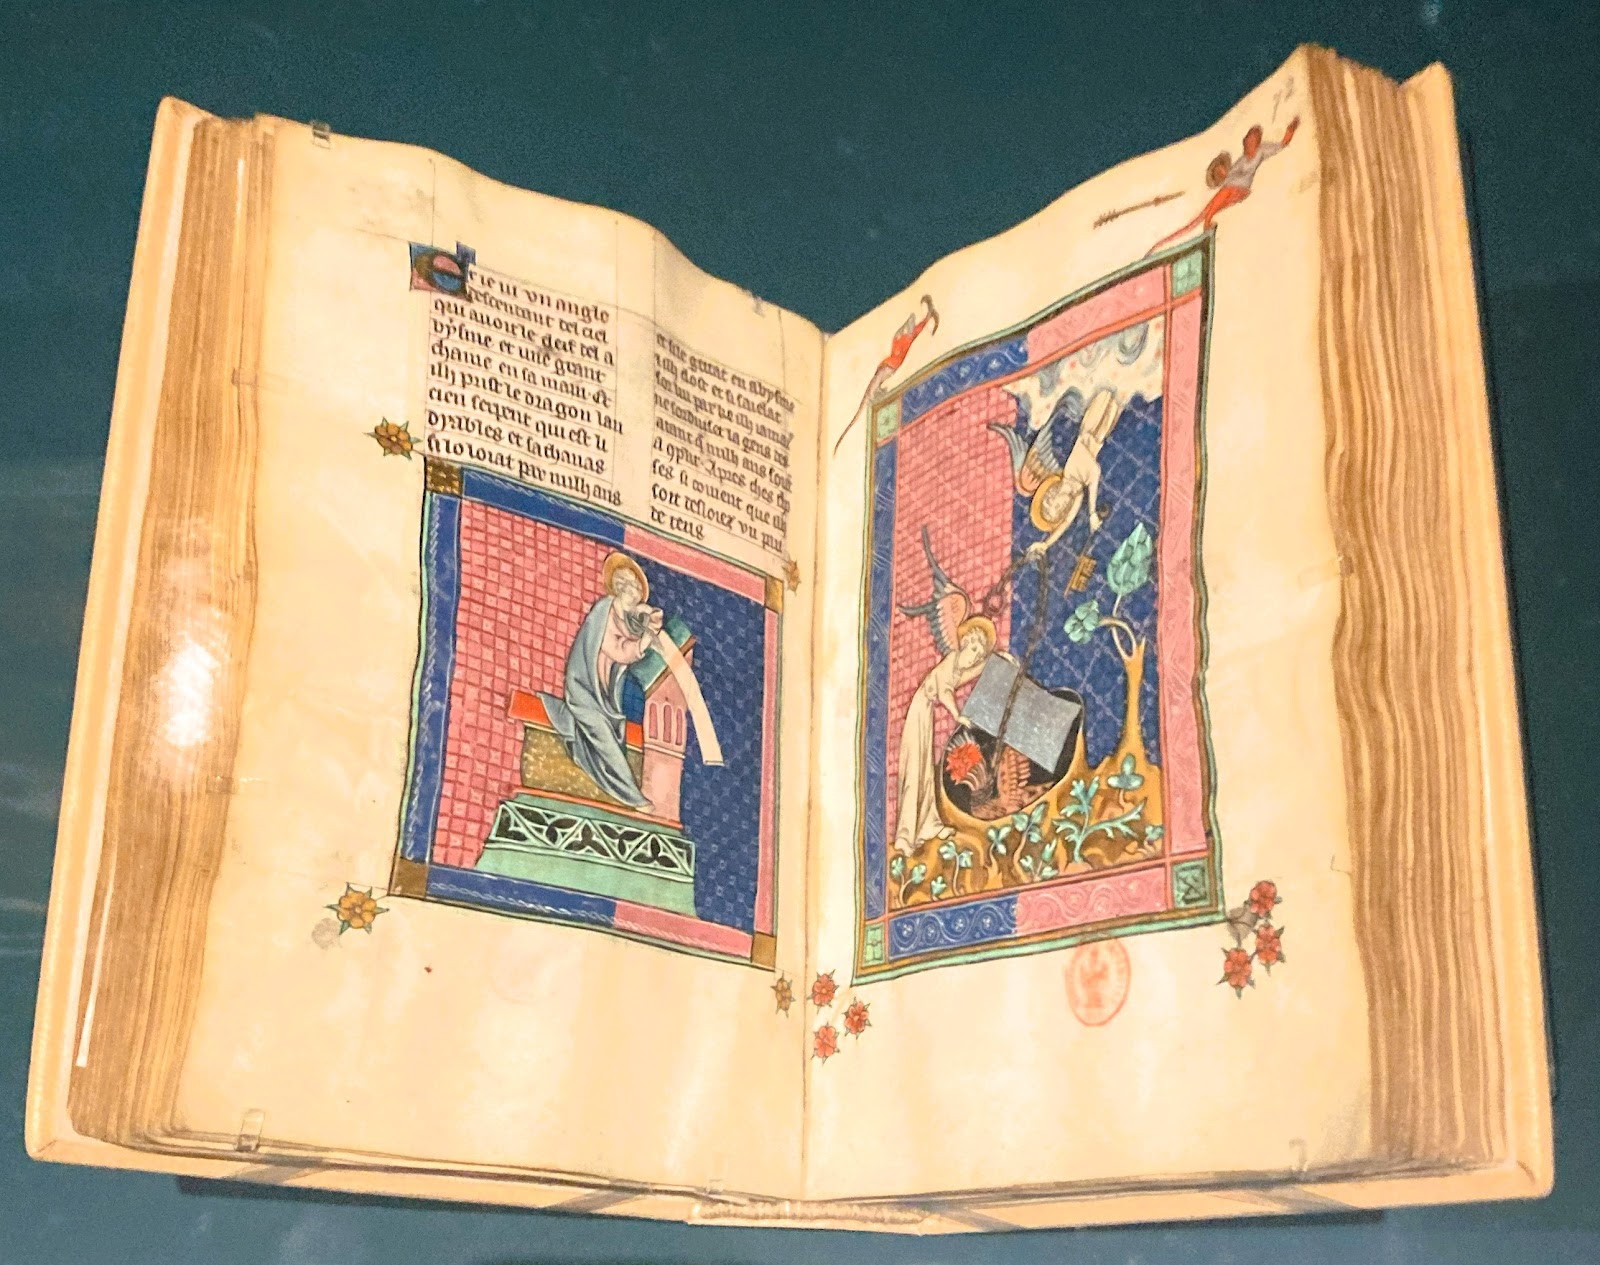 Et ie ui vn angle
descendant del ciel
qui auoit le clef del a
bysme et une grant
chaine en sa main. Et
illi prist le dragon lan
cien serpent qui est li
dyables et sathanas
si lo loiat par milh ans
et sile getat en abysme
illi clost et si saielat
sor lui par ke illi iamais
ne sorduiset la gens
auant q̃ milh ans soie
a 9plit. Apres ches
ses si couient que ilh
soit desloiez vn piu
de tens
72